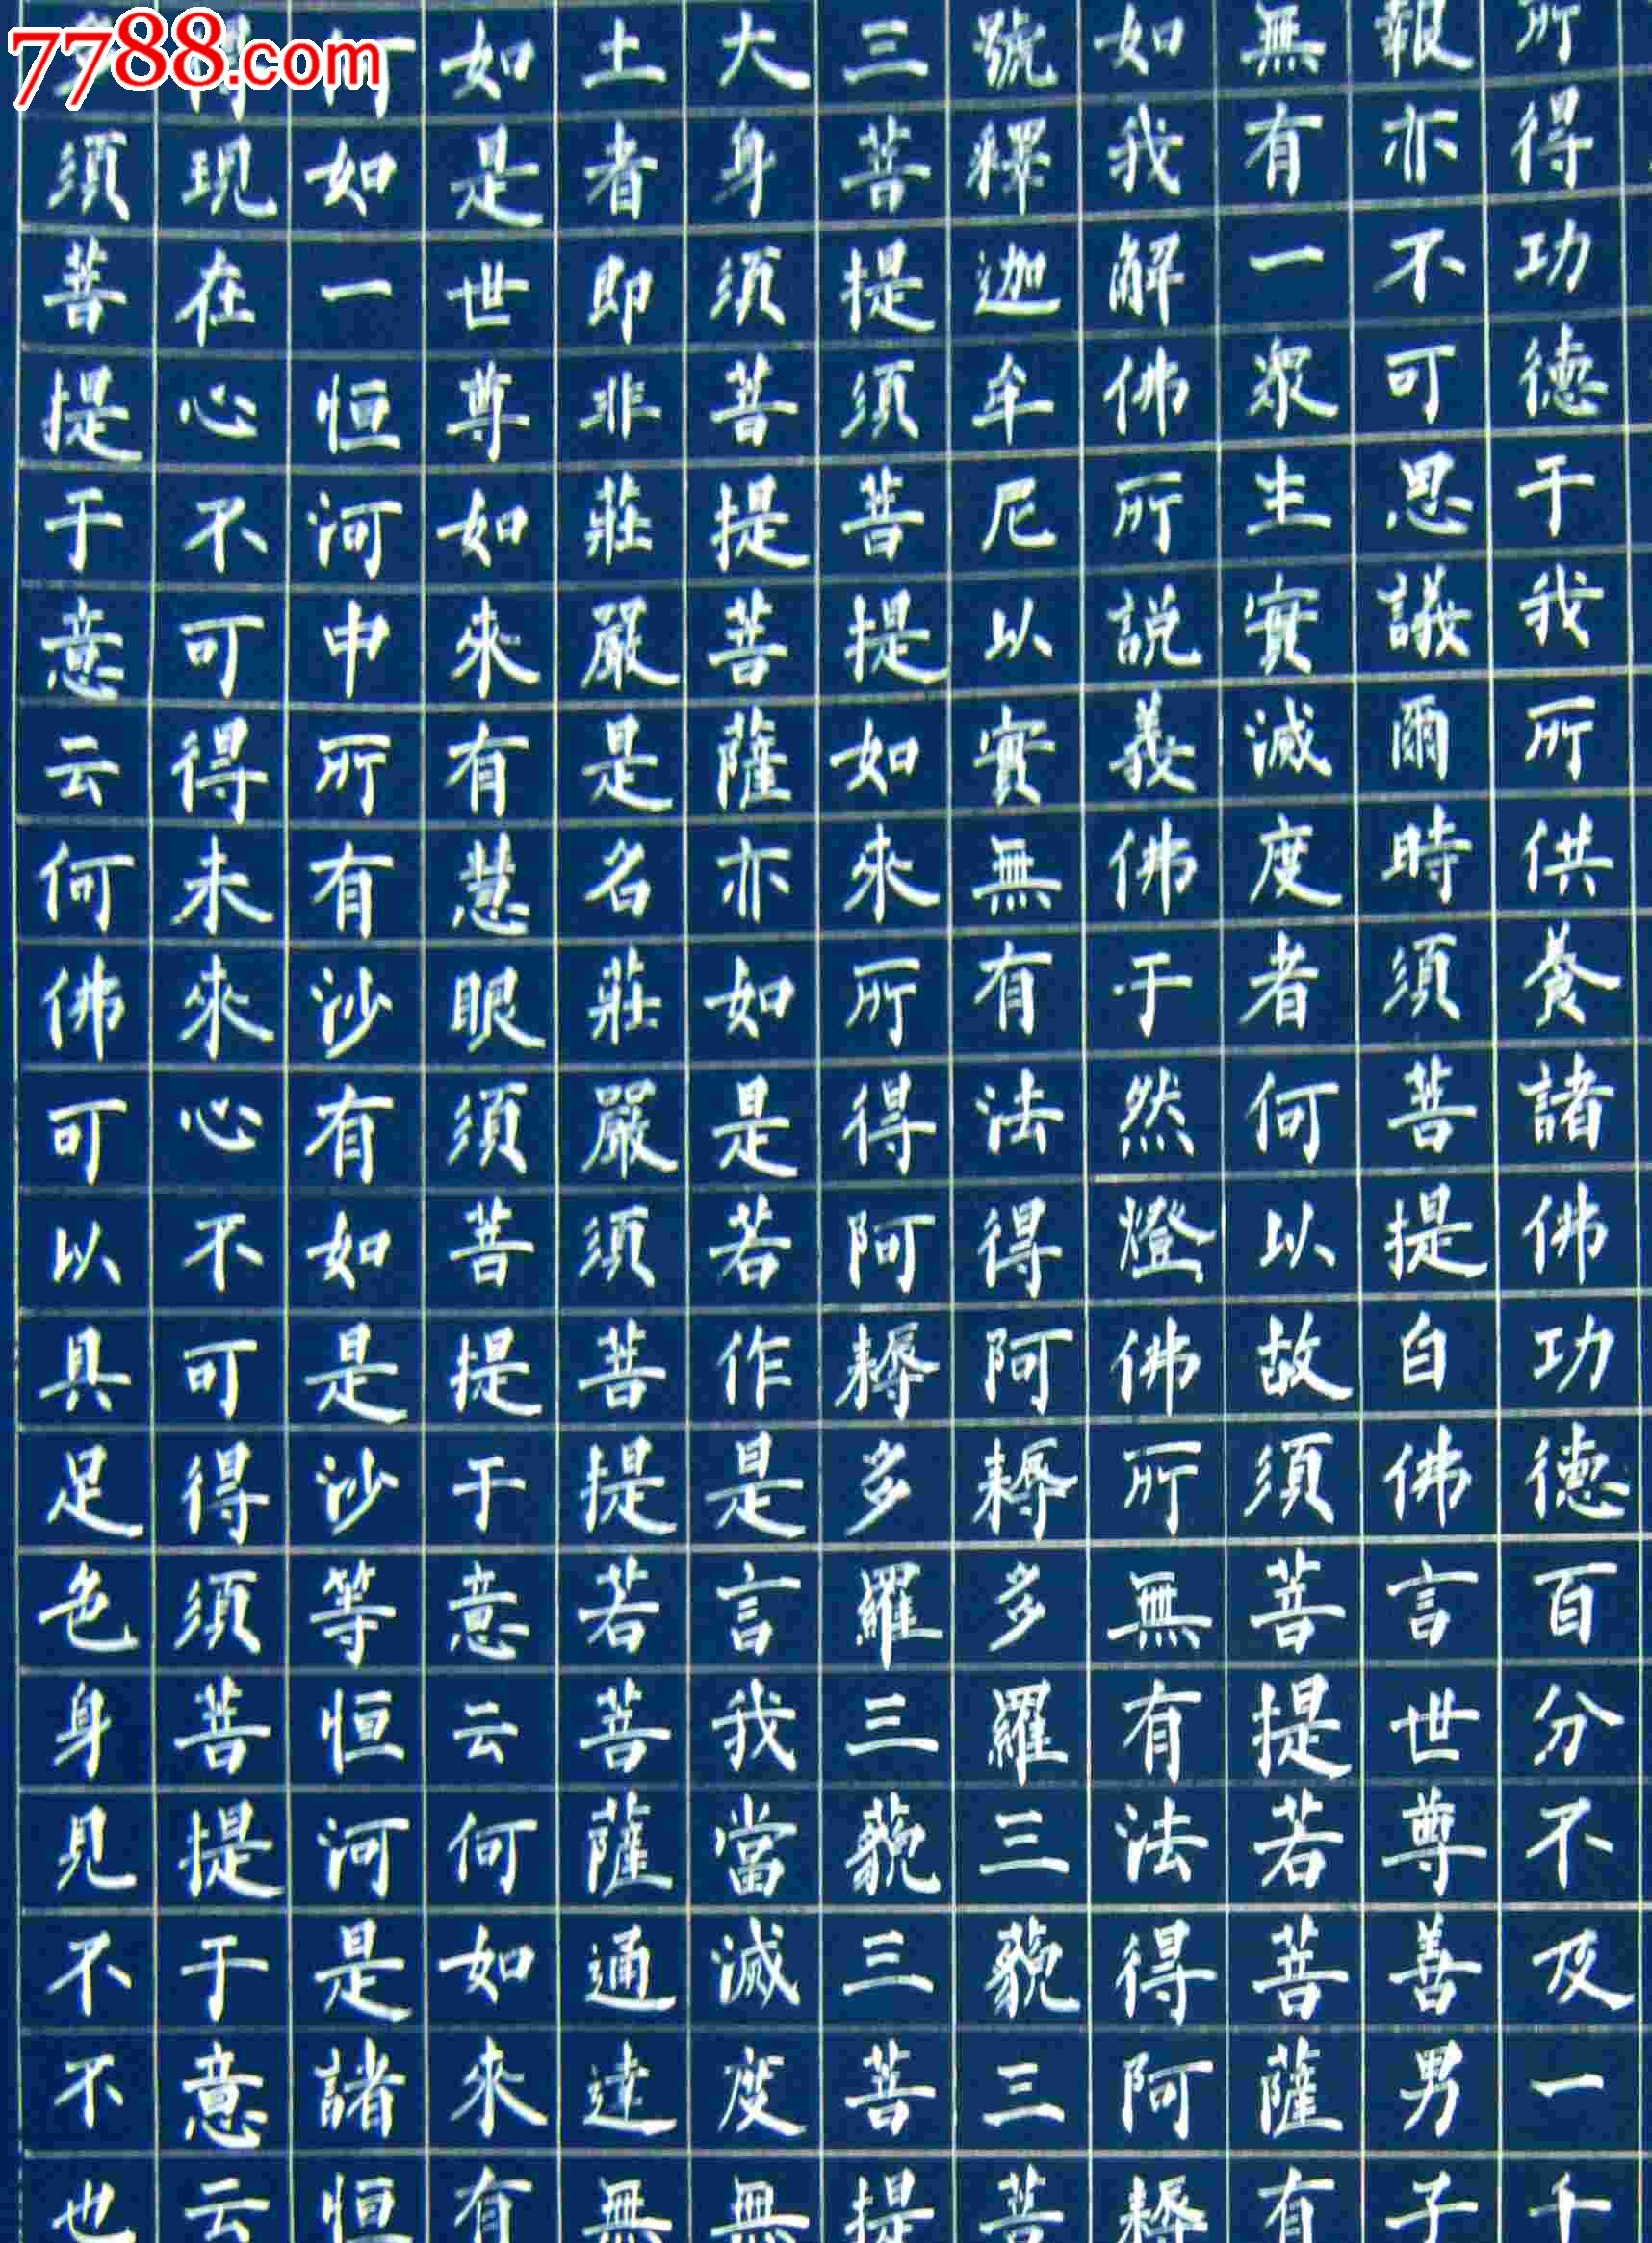 所得功德于我所供養諸佛功德百分不及一千
報亦不可思議爾時須菩提白佛言世尊善男子
無有一眾生實滅度者何以故須菩提若菩薩有
如我解佛所說義佛于然燈佛所無有法得阿耨
號釋迦牟尼以實無有法得阿耨多羅三藐三菩
三菩提須菩提如來所得阿耨多羅三藐三菩提
大身須菩提菩薩亦如是若作是言我當滅度無
土者即非莊嚴是名莊嚴須菩提若菩薩通達無
如是世尊如來有慧眼須菩提于意云何如來有
何如一恒河中所有沙有如是沙等恒河是諸恒
得現在心不可得未來心不可得須菩提于意云
須菩提于意云何佛可以具足色身見不不也
7788.com